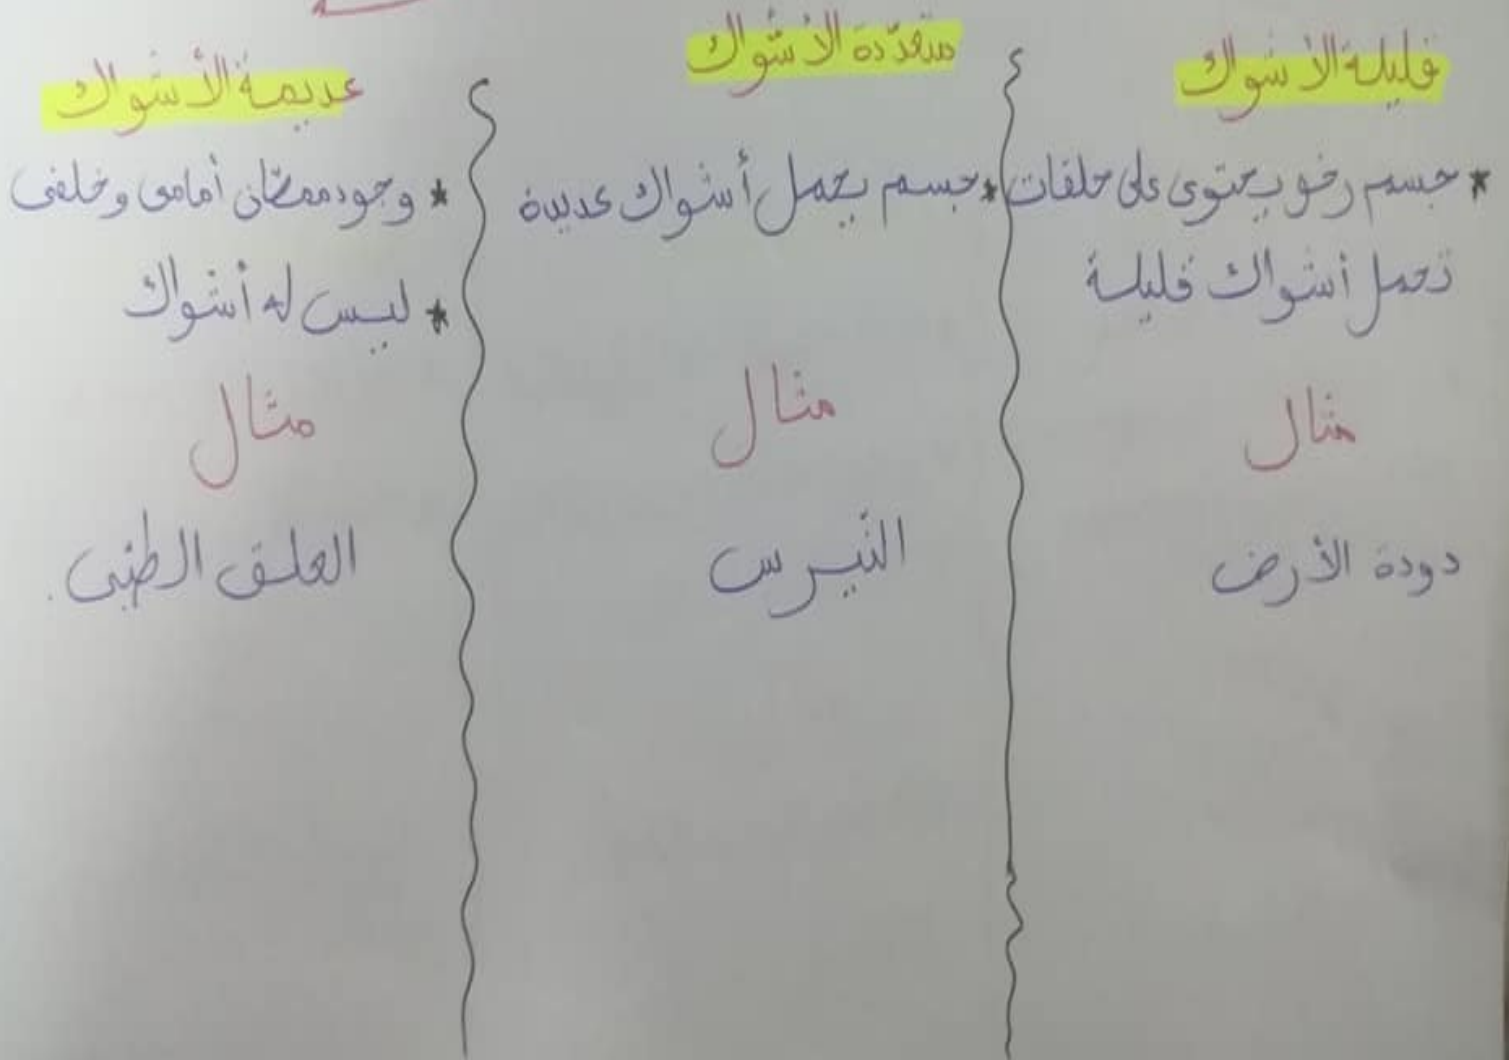 قليلة الأشواك
* جسم رخو يحتوى على حلقات
تحمل أشواك قليلة
مثال
دودة الأرض
متعدّدة الأشواك
* جسم يحمل أشواك عديدة
مثال
النيرس
عديمة الأشواك
* وجود ممصّان أمامى وخلفى
* ليس له أشواك
مثال
العلق الطبّى.